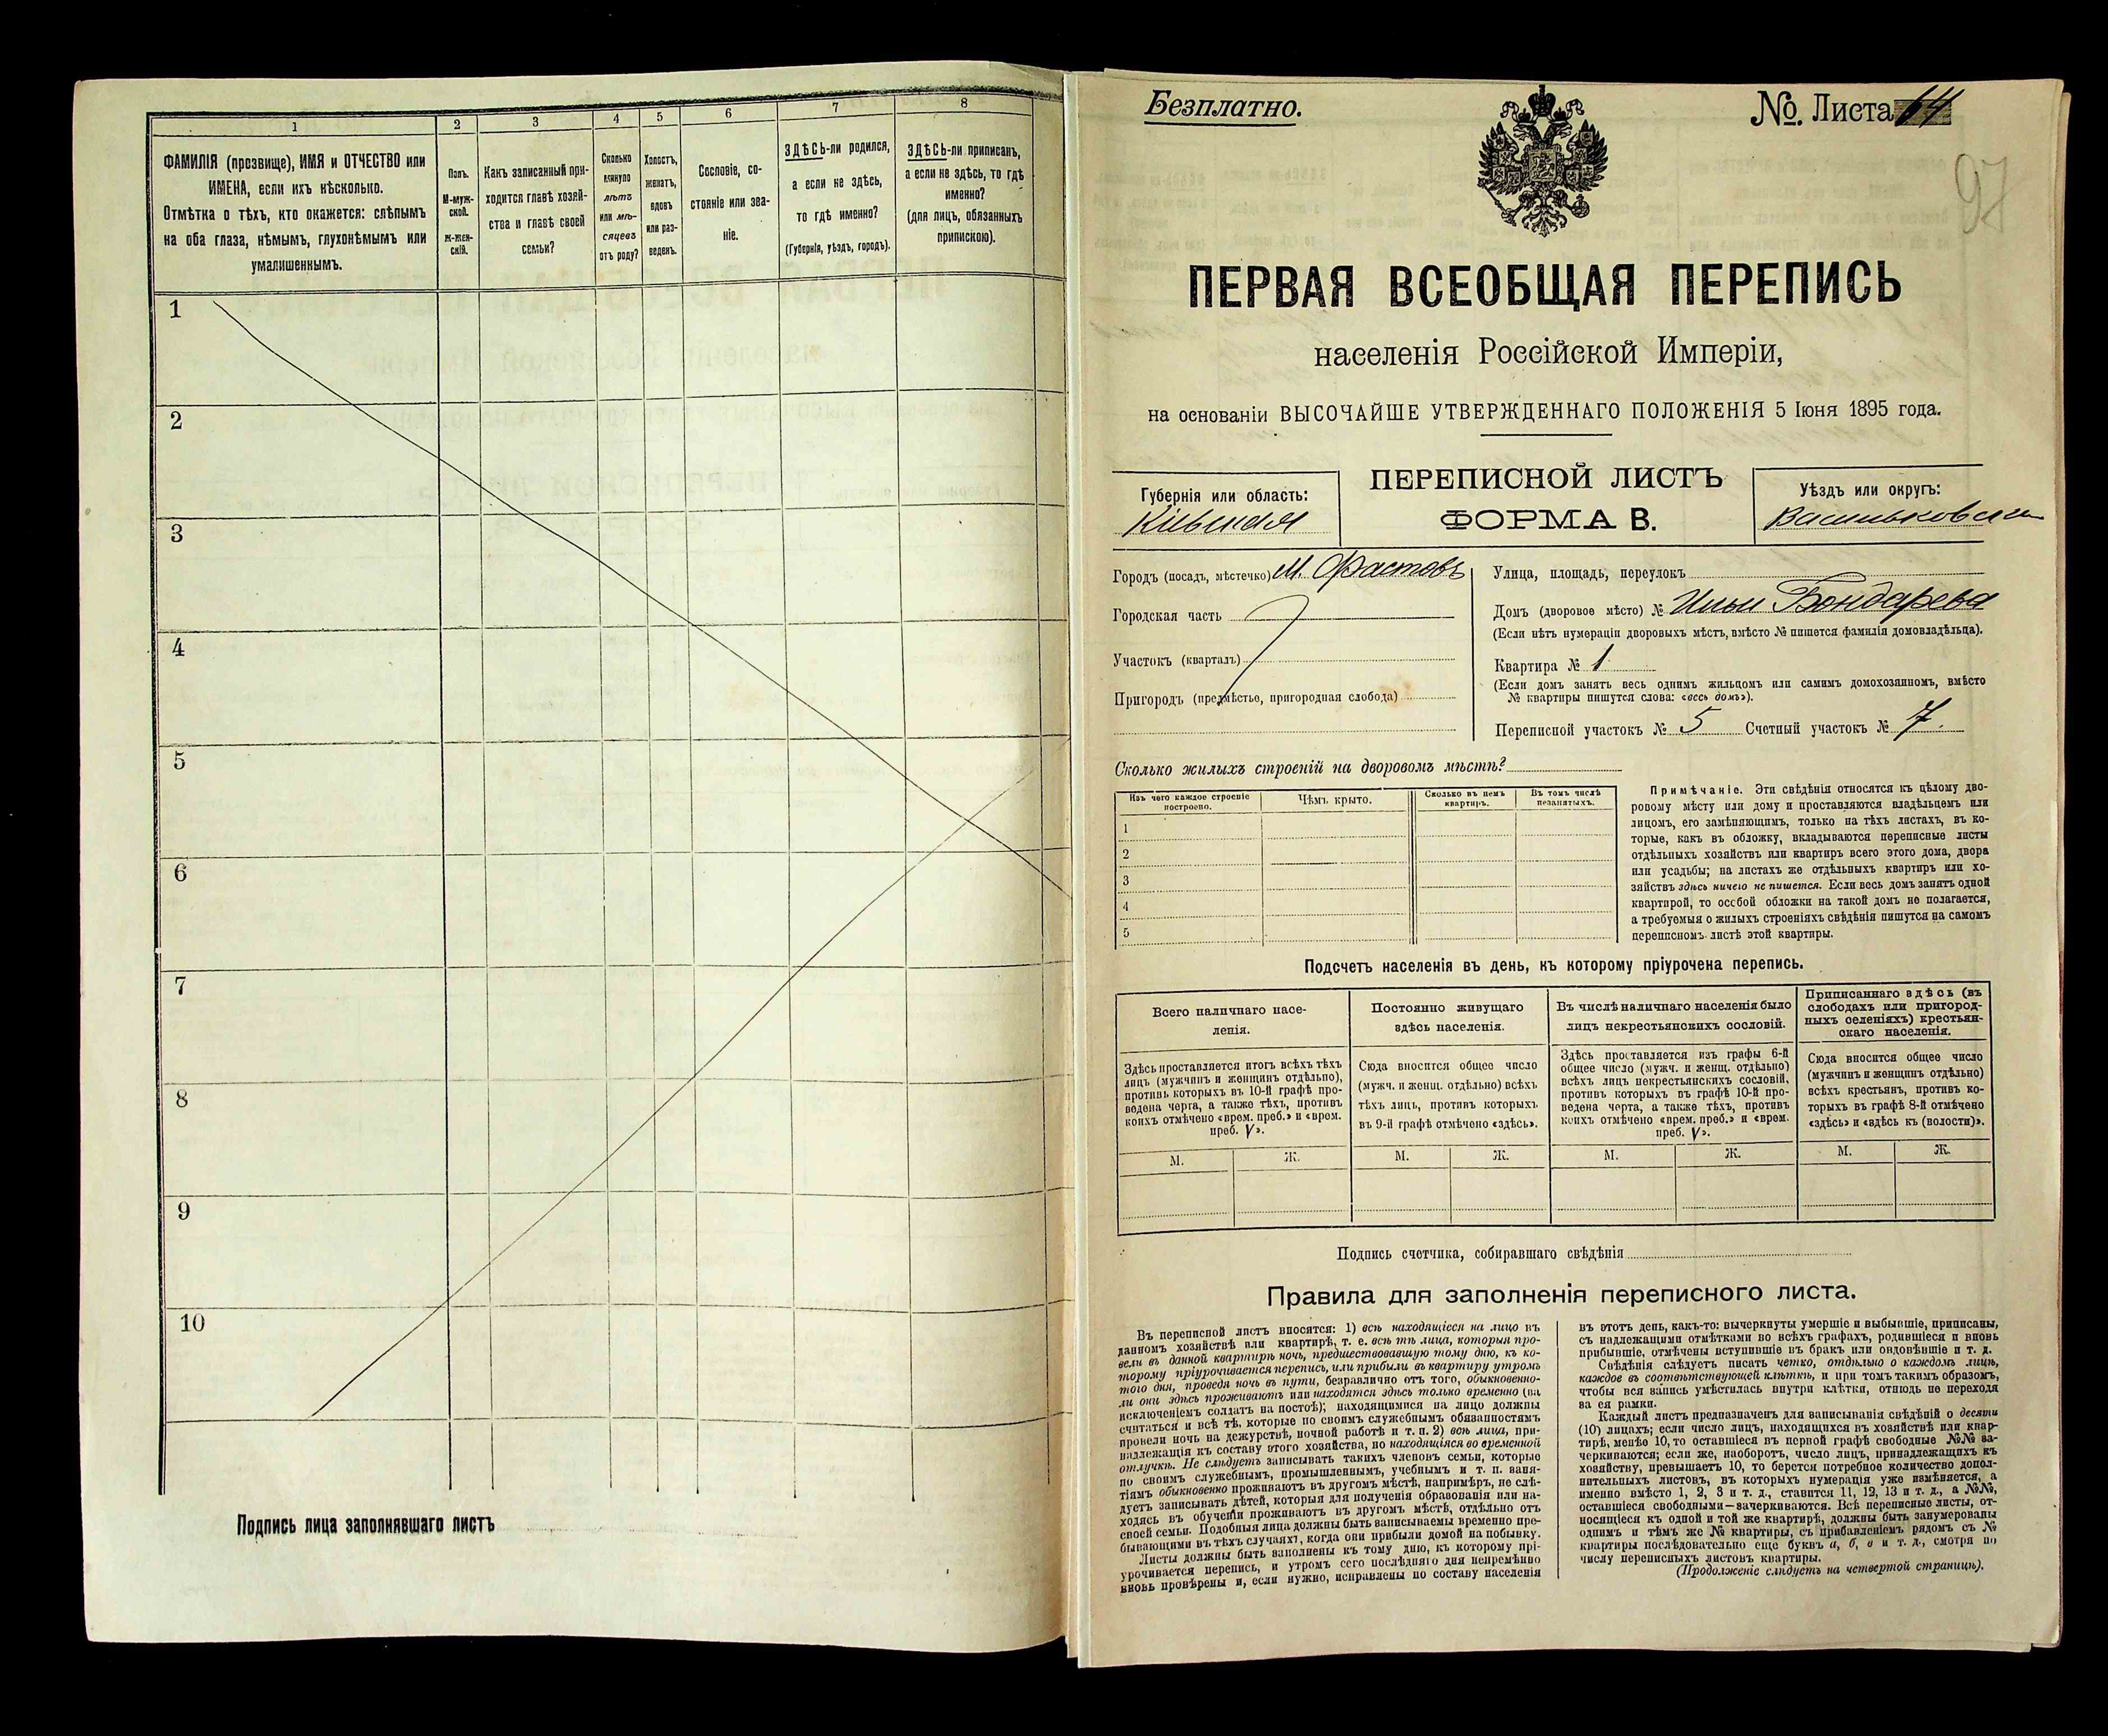 1
2
3
4
5
6
7
8
ФАМИЛІЯ (прозвище), ИМЯ и ОТЧЕСТВО или
ИМЕНА, если ихъ нѣсколько.
Отмѣтка о тѣхъ, кто окажется: слѣпымъ
на оба глаза, нѣмымъ, глухонѣмымъ или
умалишеннымъ.
Полъ.
М-муж-
ской.
Ж-жен-
скій.
Какъ записанный при-
ходится главѣ хозяй-
ства и главѣ своей
семьи?
Сколько
минуло
лѣтъ
или мѣ-
сяцевъ
отъ роду?
Холостъ,
женатъ,
вдовъ
или раз-
веденъ.
Сословіе, со-
стояніе или зва-
ніе.
ЗДѢСЬ-ли родился,
а если не здѣсь,
то гдѣ именно?
(Губернія, уѣздъ, городъ).
ЗДѢСЬ-ли приписанъ,
а если не здѣсь, то гдѣ
именно?
(для лицъ, обязанныхъ
припискою).
1
2
3
4
5
6
7
8
9
10
Подпись лица заполнявшаго листъ
Безплатно.
№ Листа 64
97
ПЕРВАЯ ВСЕОБЩАЯ ПЕРЕПИСЬ
населенія Россійской Имперіи,
на основаніи ВЫСОЧАЙШЕ УТВЕРЖДЕННАГО ПОЛОЖЕНІЯ 5 Іюня 1895 года.
Губернія или область:
Кіевская
ПЕРЕПИСНОЙ ЛИСТЪ
ФОРМА В.
Уѣздъ или округъ:
Васильковскій
Городъ (посадъ, мѣстечко) М. Фастовъ
Городская часть
Участокъ (кварталъ)
Пригородъ (предмѣстье, пригородная слобода)
Улица, площадь, переулокъ
Домъ (дворовое мѣсто) № Ильи Бондарева
(Если нѣтъ нумераціи дворовыхъ мѣстъ, вмѣсто № пишется фамилія домовладѣльца).
Квартира № 1
(Если домъ занятъ весь однимъ жильцомъ или самимъ домохозяиномъ, вмѣсто
№ квартиры пишутся слова: «весь домъ»).
Переписной участокъ № 5 Счетный участокъ № 7.
Сколько жилыхъ строеній на дворовомъ мѣстѣ?
Изъ чего каждое строеніе
построено.
Чѣмъ крыто.
Сколько въ немъ
квартиръ.
Въ томъ числѣ
незанятыхъ.
1
2
3
4
5
Примѣчаніе. Эти свѣдѣнія относятся къ цѣлому дво-
ровому мѣсту или дому и проставляются владѣльцемъ или
лицомъ, его замѣняющимъ, только на тѣхъ листахъ, въ ко-
торые, какъ въ обложку, вкладываются переписные листы
отдѣльныхъ хозяйствъ или квартиръ всего этого дома, двора
или усадьбы; на листахъ же отдѣльныхъ квартиръ или хо-
зяйствъ здѣсь ничего не пишется. Если весь домъ занятъ одной
квартирой, то особой обложки на такой домъ не полагается,
а требуемыя о жилыхъ строеніяхъ свѣдѣнія пишутся на самомъ
переписномъ листѣ этой квартиры.
Подсчетъ населенія въ день, къ которому пріурочена перепись.
Всего наличнаго насе-
ленія.
Здѣсь проставляется итогъ всѣхъ тѣхъ
лицъ (мужчинъ и женщинъ отдѣльно),
противъ которыхъ въ 10-й графѣ про-
ведена черта, а также тѣхъ, противъ
коихъ отмѣчено «врем. преб.» и «врем.
преб. V».
Постоянно живущаго
здѣсь населенія.
Сюда вносится общее число
(мужч. и женщ. отдѣльно) всѣхъ
тѣхъ лицъ, противъ которыхъ
въ 9-й графѣ отмѣчено «здѣсь».
Въ числѣ наличнаго населенія было
лицъ некрестьянскихъ сословій.
Здѣсь проставляется изъ графы 6-й
общее число (мужч. и женщ. отдѣльно)
всѣхъ лицъ некрестьянскихъ сословій,
противъ которыхъ въ графѣ 10-й про-
ведена черта, а также тѣхъ, противъ
коихъ отмѣчено «врем. преб.» и «врем.
преб. V».
Приписаннаго здѣсь (въ
слободахъ или пригород-
ныхъ селеніяхъ) крестьян-
скаго населенія.
Сюда вносится общее число
(мужчинъ и женщинъ отдѣльно)
всѣхъ крестьянъ, противъ ко-
торыхъ въ графѣ 8-й отмѣчено
«здѣсь» и «здѣсь къ (волости)».
М.
Ж.
М.
Ж.
М.
Ж.
М.
Ж.
Подпись счетчика, собиравшаго свѣдѣнія
Правила для заполненія переписного листа.
Въ переписной листъ вносятся: 1) всѣ находящіеся на лицо въ
данномъ хозяйствѣ или квартирѣ, т. е. всѣ тѣ лица, которыя про-
вели въ данной квартирѣ ночь, предшествовавшую тому дню, къ ко-
торому пріурочивается перепись, или прибыли въ квартиру утромъ
того дня, проведя ночь въ пути, безразлично отъ того, обыкновенно-
ли они здѣсь проживаютъ или находятся здѣсь только временно (за
исключеніемъ солдатъ на постоѣ); находящимися на лицо должны
считаться и всѣ тѣ, которые по своимъ служебнымъ обязанностямъ
провели ночь на дежурствѣ, ночной работѣ и т. п. 2) всѣ лица, при-
надлежащія къ составу этого хозяйства, но находящіяся во временной
отлучкѣ. Не слѣдуетъ записывать такихъ членовъ семьи, которые
по своимъ служебнымъ, промышленнымъ, учебнымъ и т. п. заня-
тіямъ обыкновенно проживаютъ въ другомъ мѣстѣ, напримѣръ, не слѣ-
дуетъ записывать дѣтей, которыя для полученія образованія или на-
ходясь въ обученіи проживаютъ въ другомъ мѣстѣ, отдѣльно отъ
своей семьи. Подобныя лица должны быть записываемы временно пре-
бывающими въ тѣхъ случаяхъ, когда они прибыли домой на побывку.
Листы должны быть заполнены къ тому дню, къ которому прі-
урочивается перепись, и утромъ сего послѣдняго дня непремѣнно
вновь провѣрены и, если нужно, исправлены по составу населенія
въ этотъ день, какъ-то: вычеркнуты умершіе и выбывшіе, приписаны,
съ надлежащими отмѣтками во всѣхъ графахъ, родившіеся и вновь
прибывшіе, отмѣчены вступившіе въ бракъ или овдовѣвшіе и т. д.
Свѣдѣнія слѣдуетъ писать четко, отдѣльно о каждомъ лицѣ,
каждое въ соотвѣтствующей клѣткѣ, и при томъ такимъ образомъ,
чтобы вся запись умѣстилась внутри клѣтки, отнюдь не переходя
за ея рамки.
Каждый листъ предназначенъ для записыванія свѣдѣній о десяти
(10) лицахъ; если число лицъ, находящихся въ хозяйствѣ или квар-
тирѣ, менѣе 10, то оставшіеся въ первой графѣ свободные №№ за-
черкиваются; если же, наоборотъ, число лицъ, принадлежащихъ къ
хозяйству, превышаетъ 10, то берется потребное количество допол-
нительныхъ листовъ, въ которыхъ нумерація уже измѣняется, а
именно вмѣсто 1, 2, 3 и т. д., ставится 11, 12, 13 и т. д., а №№,
оставшіеся свободными—зачеркиваются. Всѣ переписные листы, от-
носящіеся къ одной и той же квартирѣ, должны быть занумерованы
однимъ и тѣмъ же № квартиры, съ прибавленіемъ рядомъ съ №
квартиры послѣдовательно еще буквъ а, б, в и т. д., смотря по
числу переписныхъ листовъ квартиры.
(Продолженіе слѣдуетъ на четвертой страницѣ).